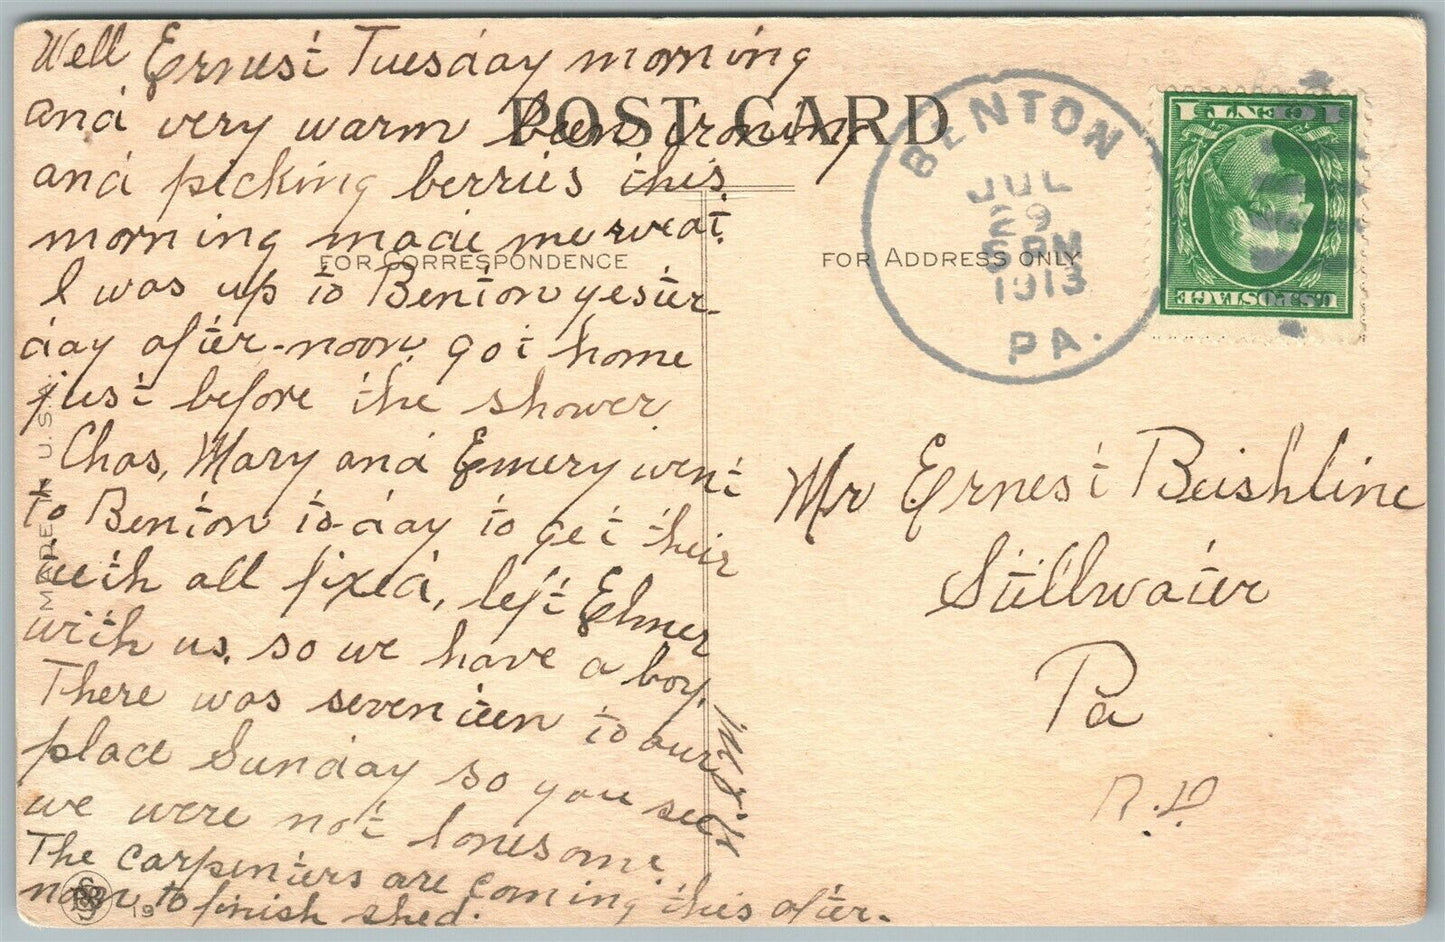 Well Ernest Tuesday morning
and very warm been ironing
and picking berries this
morning made me sweat.
I was up to Benton yester-
day after-noon, got home
just before the shower.
Chas, Mary and Emery went
to Benton to-day to get their
teeth all fixed, left Elmer
with us, so we have a boy.
There was seventeen to our
place Sunday so you see
we were not lonesome.
The carpenters are coming this after-
noon to finish shed.
POST CARD
FOR CORRESPONDENCE
FOR ADDRESS ONLY
MADE IN U.S.A.
19
BENTON
JUL
29
5 PM
1913
PA.
1 CENT 1
U.S. POSTAGE
Mr Ernest Beishline
Stillwater
Pa
R.D.